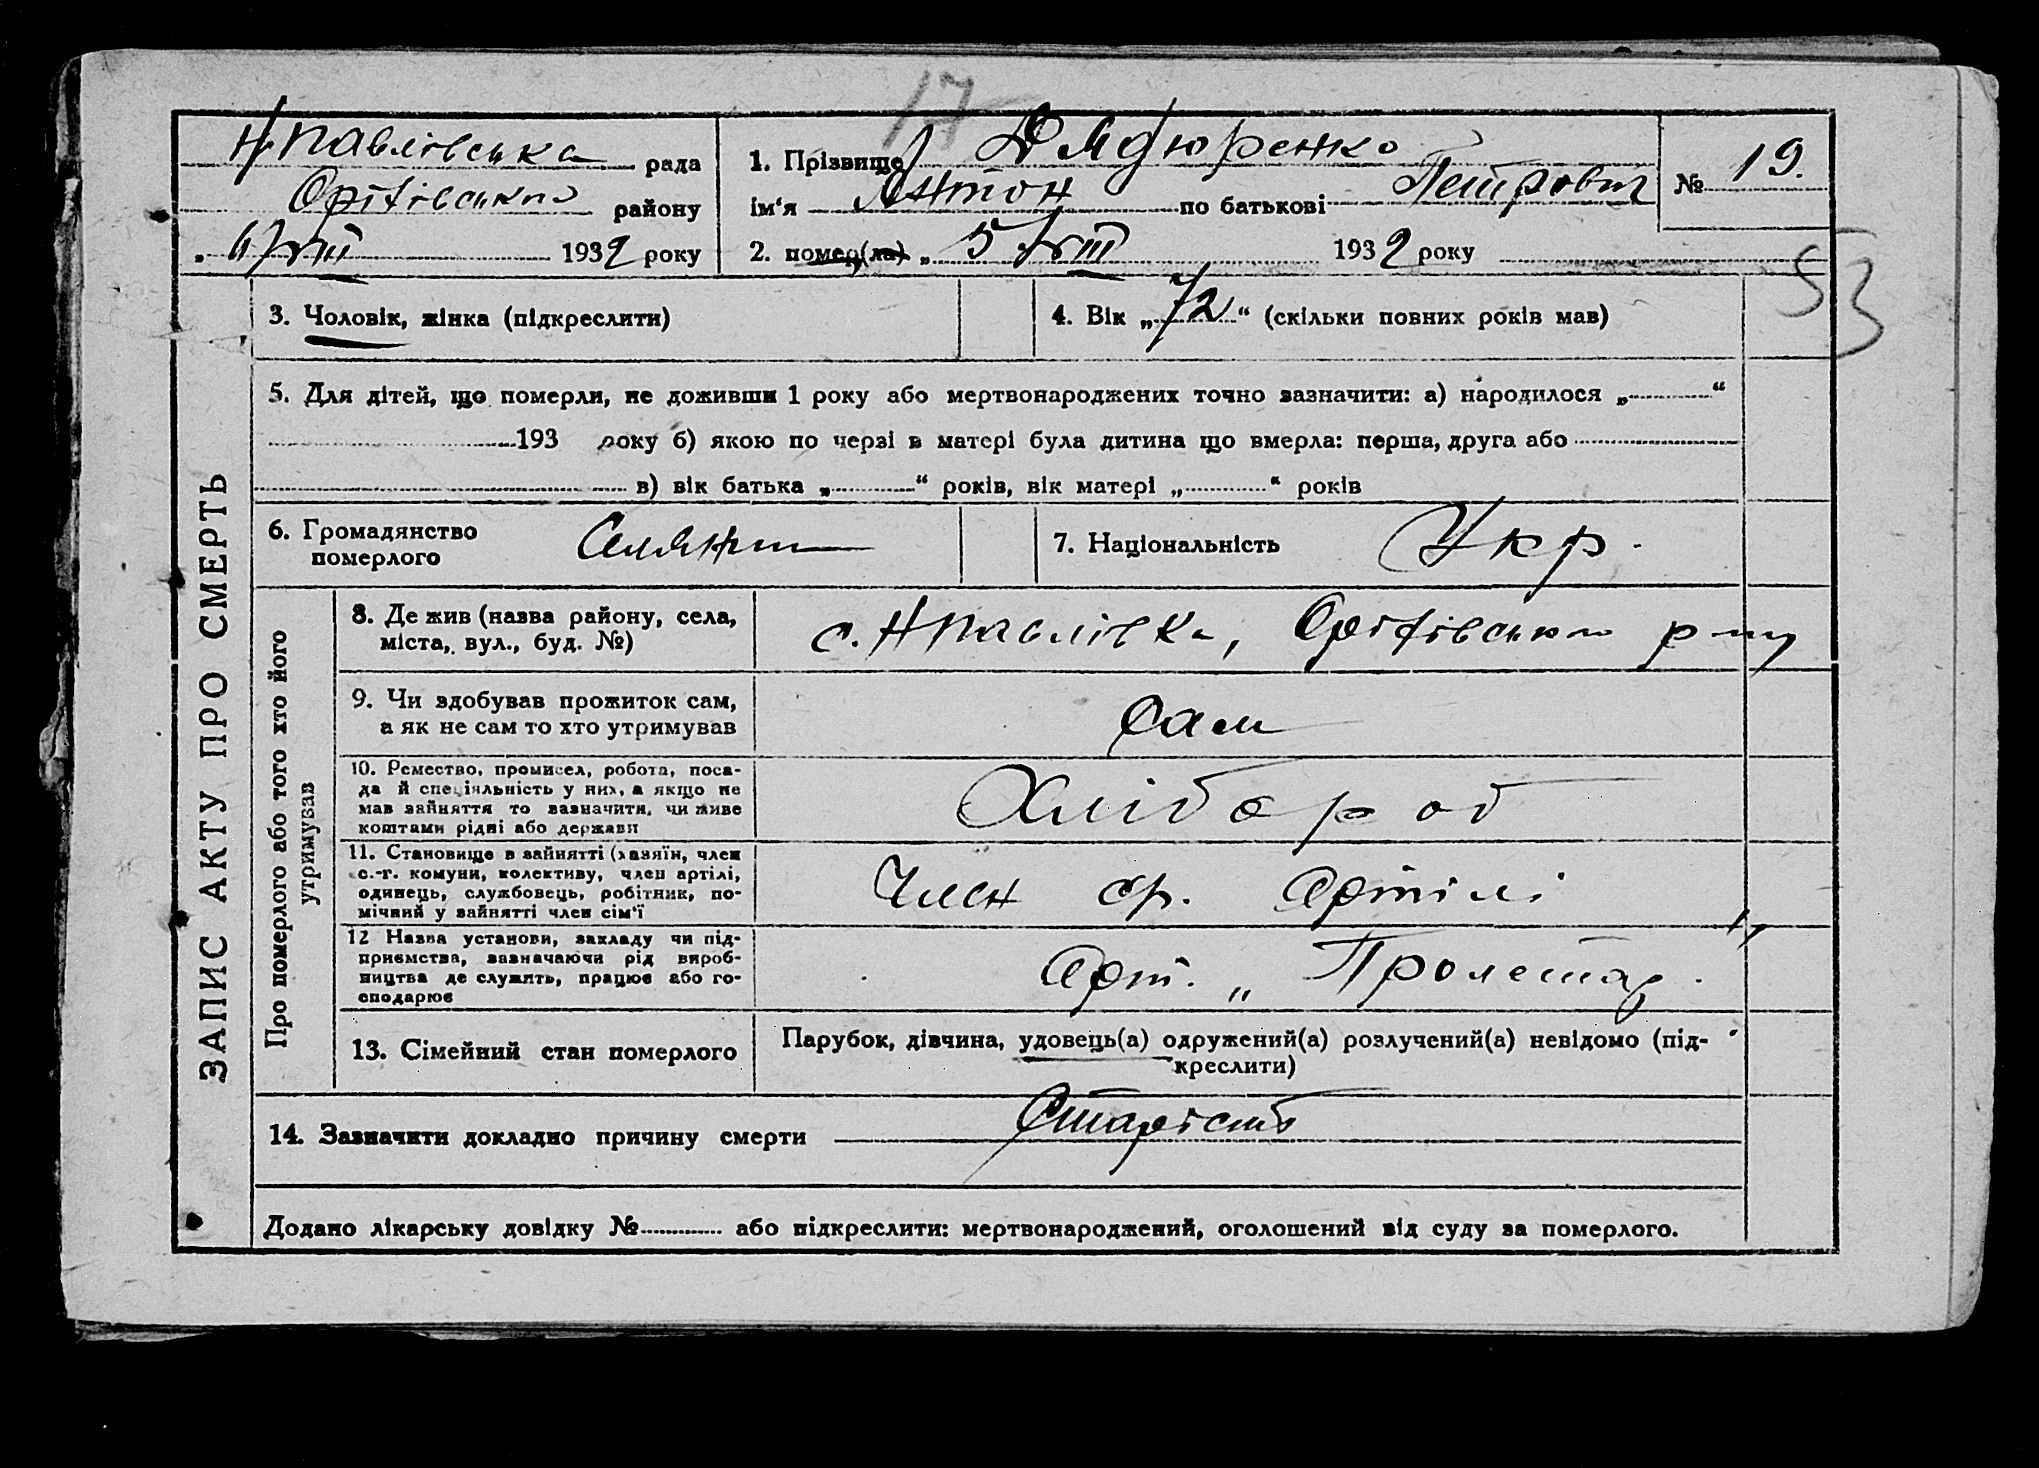 17
Н/Павлівська рада
Оріхівського району
„ 6/VIII 1932 року
1. Прізвище Дядюренко
ім‘я Антон по батькові Петрович
2. помер(ла) „ 5/VIII 1932 року
№ 19.
53
ЗАПИС АКТУ ПРО СМЕРТЬ
3. Чоловік, жінка (підкреслити)
4. Вік „72“ (скільки повних років мав)
5. Для дітей, що померли, не доживши 1 року або мертвонароджених точно зазначити: а) народилося „ “
193 року б) якою по черзі в матері була дитина що вмерла: перша, друга або
в) вік батька „ “ років, вік матері „ “ років
6. Громадянство
померлого
Селянин
7. Національність Укр.
Про померлого або того хто його
утримував
8. Де жив (назва району, села,
міста, вул., буд. №)
с. Н Павлівка, Оріхівського р-ну
9. Чи здобував прожиток сам,
а як не сам то хто утримував
Сам
10. Ремество, промисел, робота, поса-
да й спеціяльність у них, а якщо не
мав зайняття то зазначити, чи живе
коштами рідні або держави
Хлібороб
11. Становище в зайнятті (хазяїн, член
с.-г. комуни, колективу, член артілі,
одинець, службовець, робітник, по-
мічний у зайнятті член сім‘ї
Член ср. Артілі
12 Назва установи, закладу чи під-
приємства, зазначаючи рід вироб-
ництва де служить, працює або го-
сподарює
Арт. „Пролетар.“
13. Сімейний стан померлого
Парубок, дівчина, удовець(а) одружений(а) розлучений(а) невідомо (під-
креслити)
14. Зазначити докладно причину смерти Старість
Додано лікарську довідку № або підкреслити: мертвонароджений, оголошений від суду за померлого.